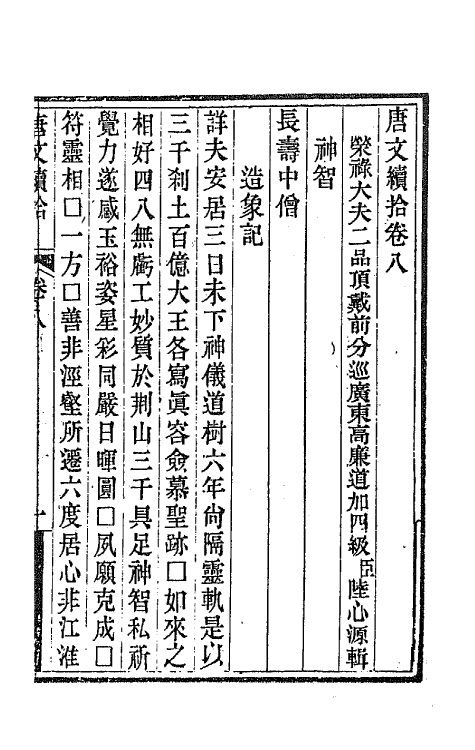 唐文續拾卷八
榮祿大夫二品頂戴前分巡廣東高廉道加四級臣陸心源輯
神智
長壽中僧
造象記
詳夫安居三日未下神儀道樹六年尙隔靈軌是以
三千刹土百億大王各寫眞容僉慕聖跡□如來之
相好四八無虧工妙質於荆山三千具足神智私祈
覺力遂感玉裕姿星彩同嚴日暉圓□夙願克成□
符靈相□一方□善非涇壑所遷六度居心非江淮
唐文續拾 卷八 一